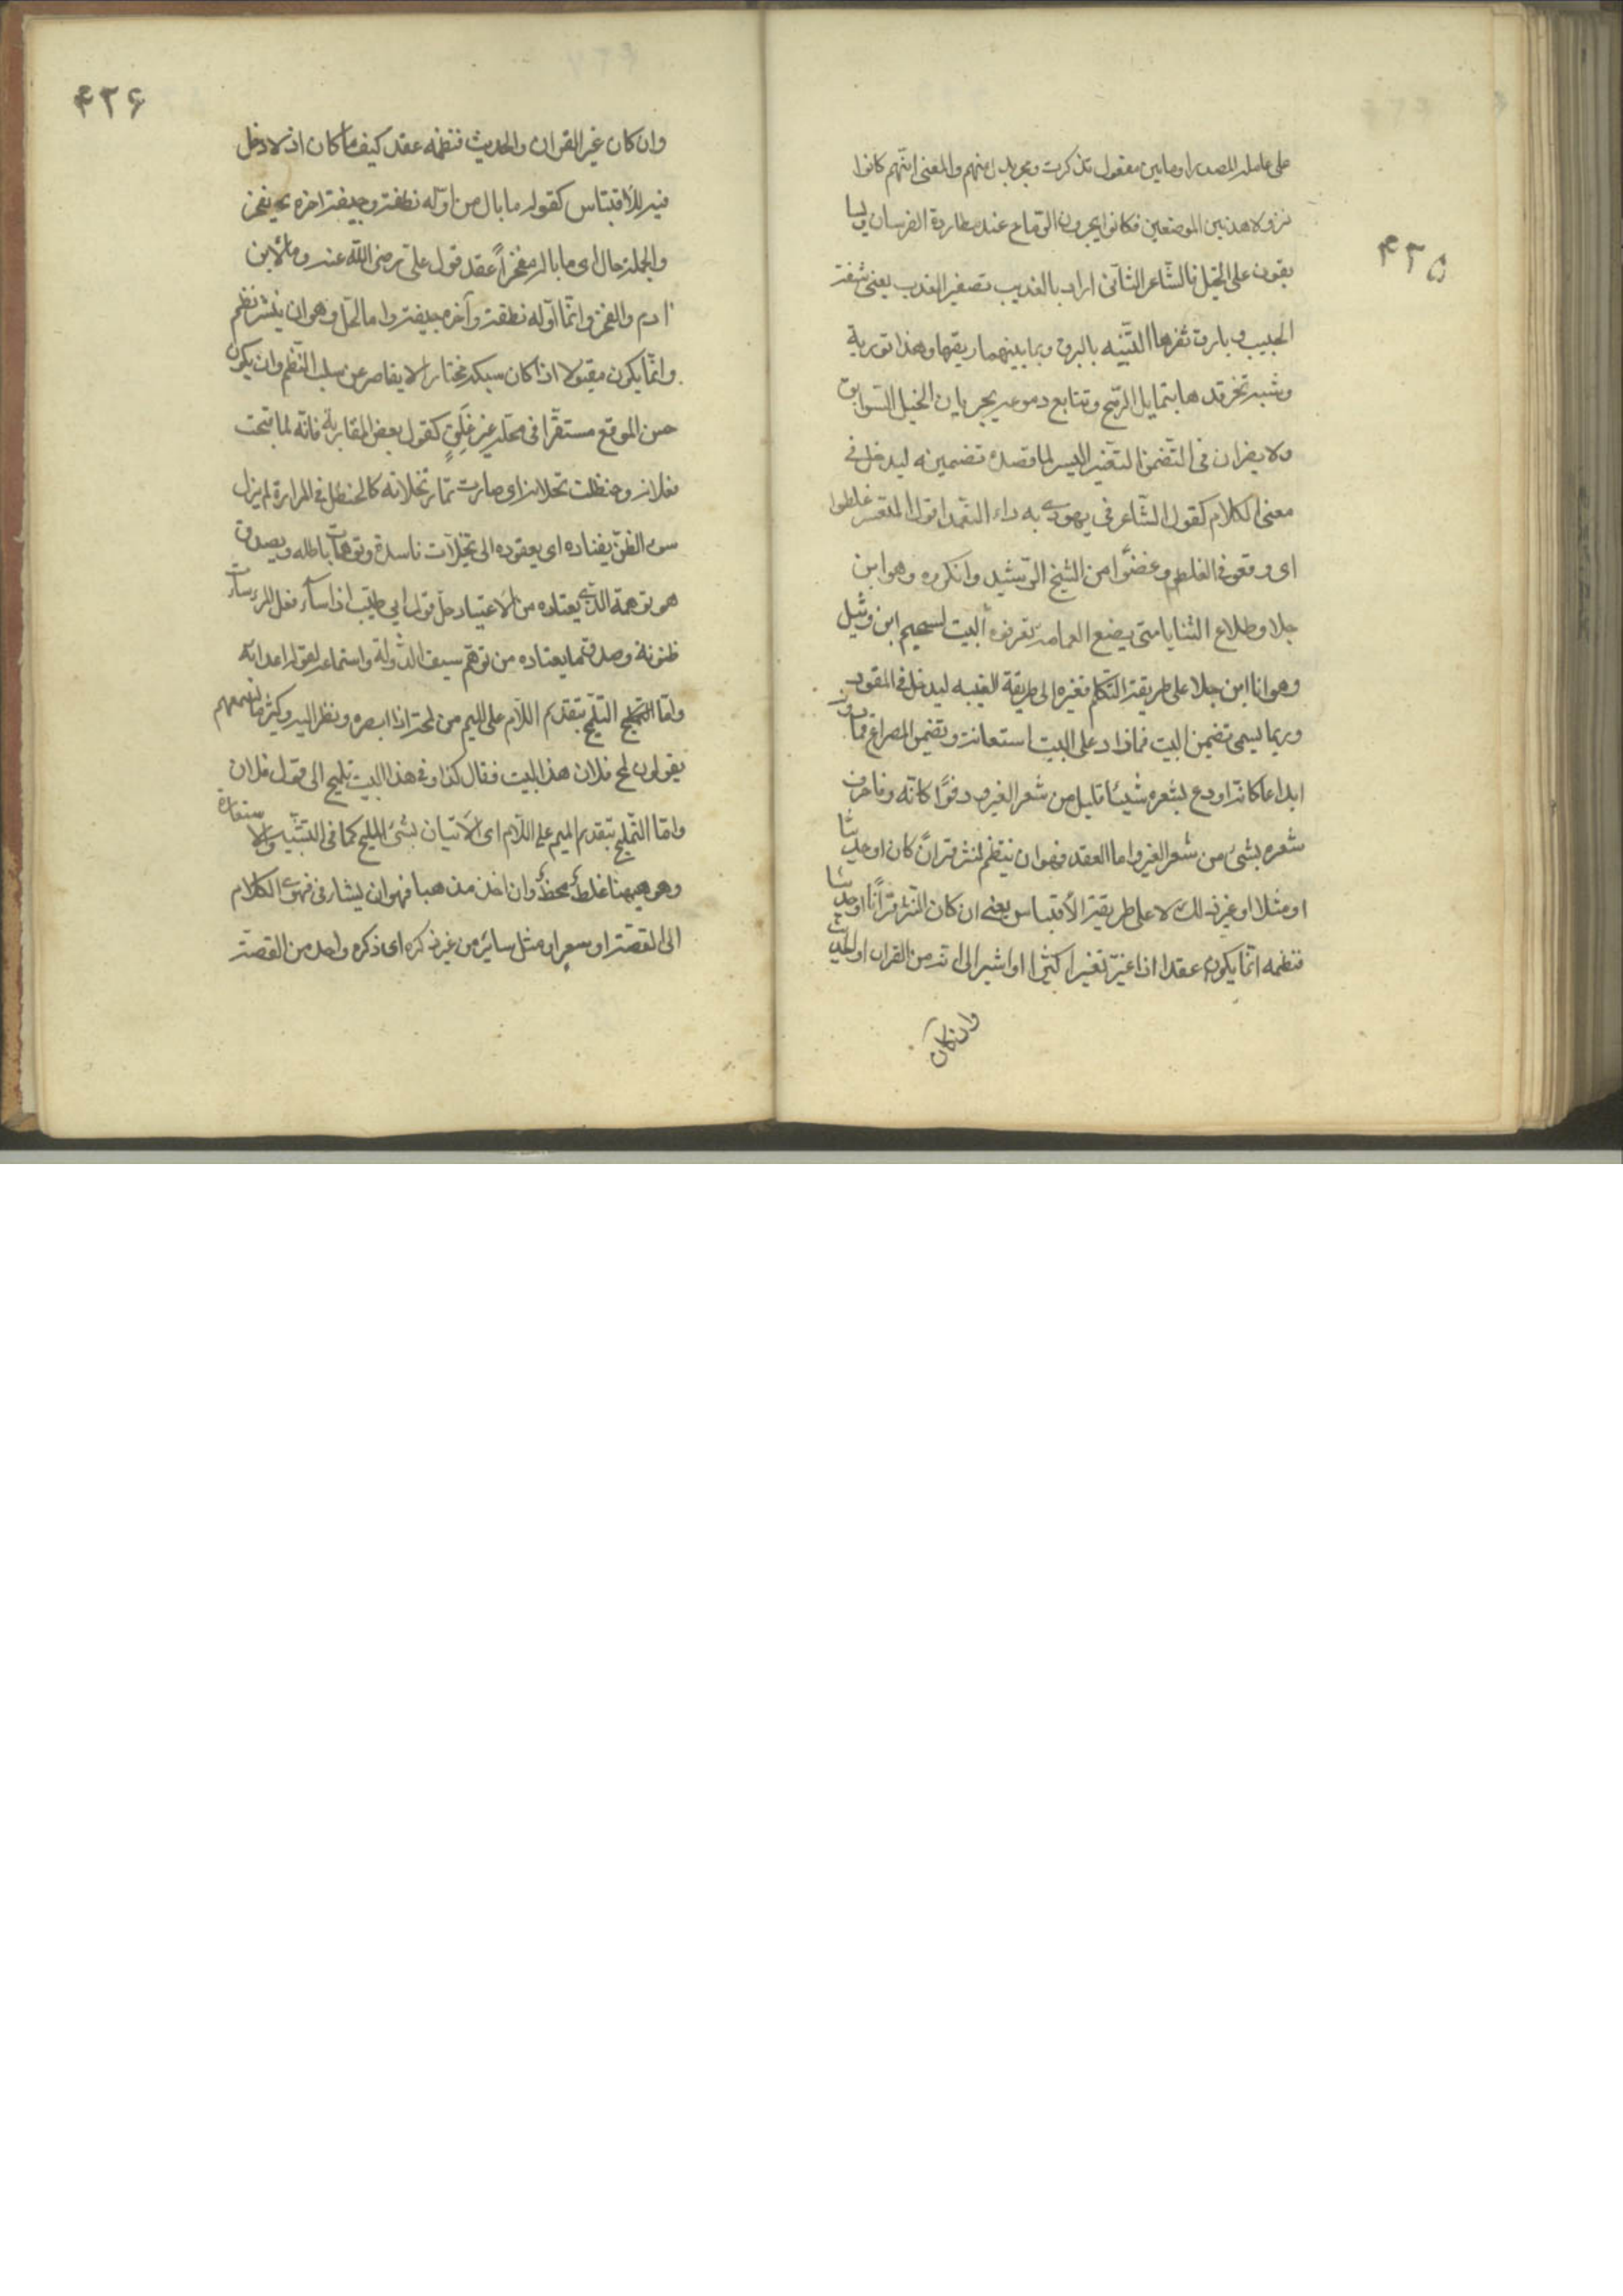 ۴۲۵
على عامله المصدر او ما بين مفعول تذكرت ومجر بدل منهم والمعنى انهم كانوا
نزولا هذين الموضعين فكانوا يجرون الرماح عند مطاردة الفرسان ويسا
بقون على الخيل فالشاعر الثانى اراد بالعذيب تصغير العذب يعنى شفة
الحبيب وبارق ثغرها الشبيه بالبرق وبما بينهما ريقها وهذا تورية
وشبه تبختر قدها بتمايل الرمح وتتابع دموعه بجريان الخيل السوابق
ولا يضر ان فى التضمين التغير اليسير لما قصده تضمينه ليدخل فى
معنى الكلام كقول الشاعر فى يهودى به داء الثعلب اقول لمعشر غلطوا
اى وقعوا فى الغلط وغضوا من الشيخ الرشيد وانكروه وهو ابن
جلا وطلاع الثنايا متى يضع العمامة تعرفوه البيت لسحيم ابن وثيل
وهو انا ابن جلا على طريقة التكلم فغيره الى طريقة الغيبه ليدخل فى المقصود
وربما يسمى تضمين البيت فما زاد على البيت استعانة وتضمين المصراع فما دونه
ابداعا كانه اودع بشعره شيئا قليل من شعر الغير ورفوا كانه رفا خرق
شعره بشىء من شعر الغير واما العقد فهو ان ينظم نثر قرانا كان او حديثا
او مثلا او غير ذلك لا على طريقة الاقتباس يعنى ان كان النثر قرانا او حديثا
فنظمه انما يكون عقدا اذا غير تغيرا كثيرا او اشير الى انه من القران او الحديث
وان كان
۴۲۶
وان كان غير القران والحديث فنظمه عقد كيف ما كان اذ لا دخل
فيه للاقتباس كقوله ما بال من اوله نطفة وجيفة اخره يفخر
والجملة حال اى ما باله مفتخرا عقد قول على رضى الله عنه وما لابن
ادم والفخر وانما اوله نطفة وآخره جيفة واما الحل وهو ان ينثر نظم
وانما يكون مقبولا اذا كان سبكه مختارا لا يقاصر عن سلب النظم وان يكون
حسن الموقع مستقرا فى محله غير قلق كقول بعض المغاربة فانه لما قبحت
فعلاته وحنظلت نخلاته اى صارت ثمار نخلاته كالحنظل فى المرارة لم يزل
سوء الظن يقتاده اى يقوده الى تخيلات فاسدة وتوهمات باطله ويصدق
هو توهمه الذى يعتاده من الاعتياد حل قول ابى طيب اذا ساء فعل المرء ساءت
ظنونه وصدق ما يعتاده من توهم سيف الدولة واستماعه لقول اعدائه
واما التلميح بتقديم اللام على الميم من لمحه اذا ابصره ونظر اليه وكثيرا ما تسمعهم
يقولون لمح فلان هذا البيت فقال كذا وفى هذا البيت تلميح الى قول فلان
واما التمليح بتقديم الميم على اللام اى الاتيان بشىء المليح كما فى التشبيه والاستعارة
وهو هيهنا غلط محض وان اخذ مذهبا فهو ان يشار فى فحوى الكلام
الى القصة او شعر او مثل سائر من غير ذكره اى ذكره واحد من القصة